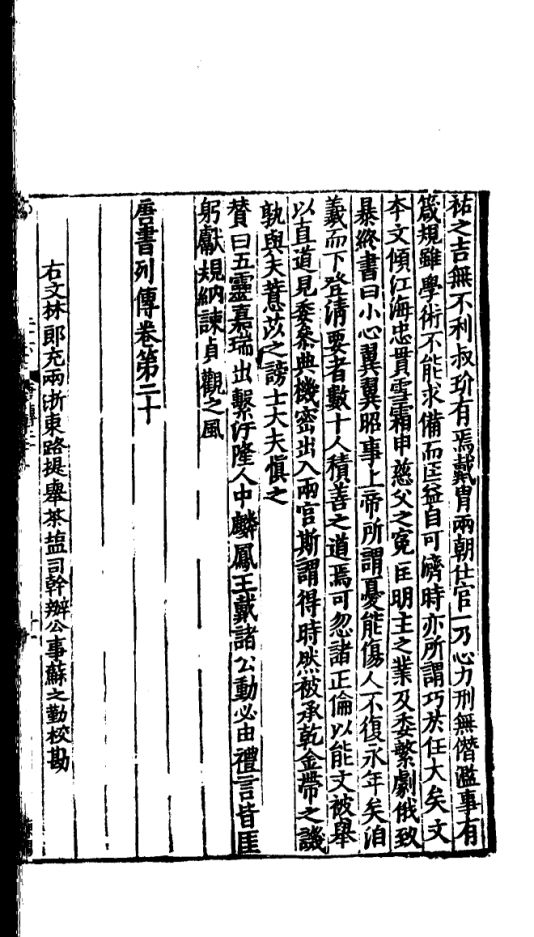 祐之吉無不利叔玠有焉戴胄兩朝仕官一乃心力刑無僭濫事有
箴規雖學術不能求備而匡益自可濟時亦所謂巧於任大矣文
本文傾江海忠貫雪霜申慈父之冤匡明主之業及委繁劇俄致
暴終書曰小心翼翼昭事上帝所謂憂能傷人不復永年矣洎
義而下登清要者數十人積善之道焉可忽諸正倫以能文被舉
以直道見委叅典機密出入兩宮斯謂得時然被承乾金帶之譏
孰與夫薏苡之謗士大夫慎之
贊曰五靈嘉瑞出繫汙隆人中麟鳳王戴諸公動必由禮言皆匡
躬獻規納諫貞觀之風
唐書列傳卷第二十
右文林郎充兩浙東路提舉茶塩司幹辦公事蘇之勤校勘